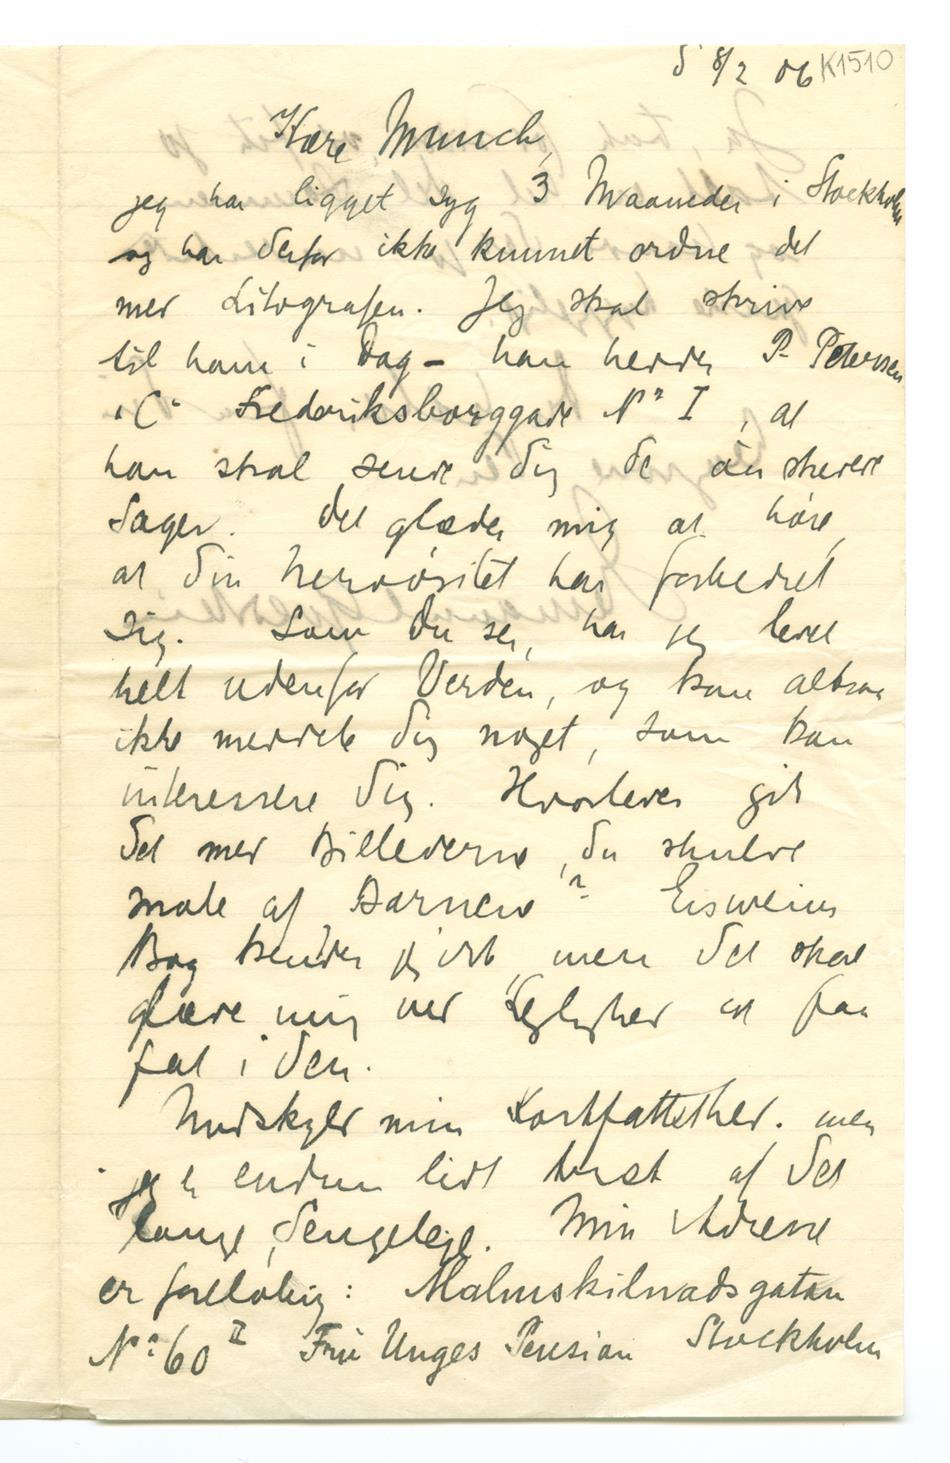 d 8/2 06 K1510
Kære Munch,
jeg har ligget syg 3 Maaneder i Stockholm
og har derfor ikke kunnet ordne det
med Litografen. Jeg skal skrive
til ham i Dag – han hedder P. Petersen
"C" Frederiksborggade No I, at
han skal sende dig de ønskede
Sager. Det glæder mig at høre,
at din Nervøsitet har forbedret
sig. Som du ser, har jeg levet
helt udenfor Verden, og kan altsaa
ikke meddele dig noget, som kan
interessere dig. Hvorledes gik
det med Billederne, du skulde
male af Børnene? Eisweins
Bog kender jeg ikke, men det skal
glæde mig ved Lejlighed at faa
fat i den.
Undskyld min Kortfattethed. men
jeg er endnu lidt træt af det
lange Sengeleje. Min Adresse
er foreløbig: Malmskilnadsgatan
No: 60 II Fru Unges Pension Stockholm